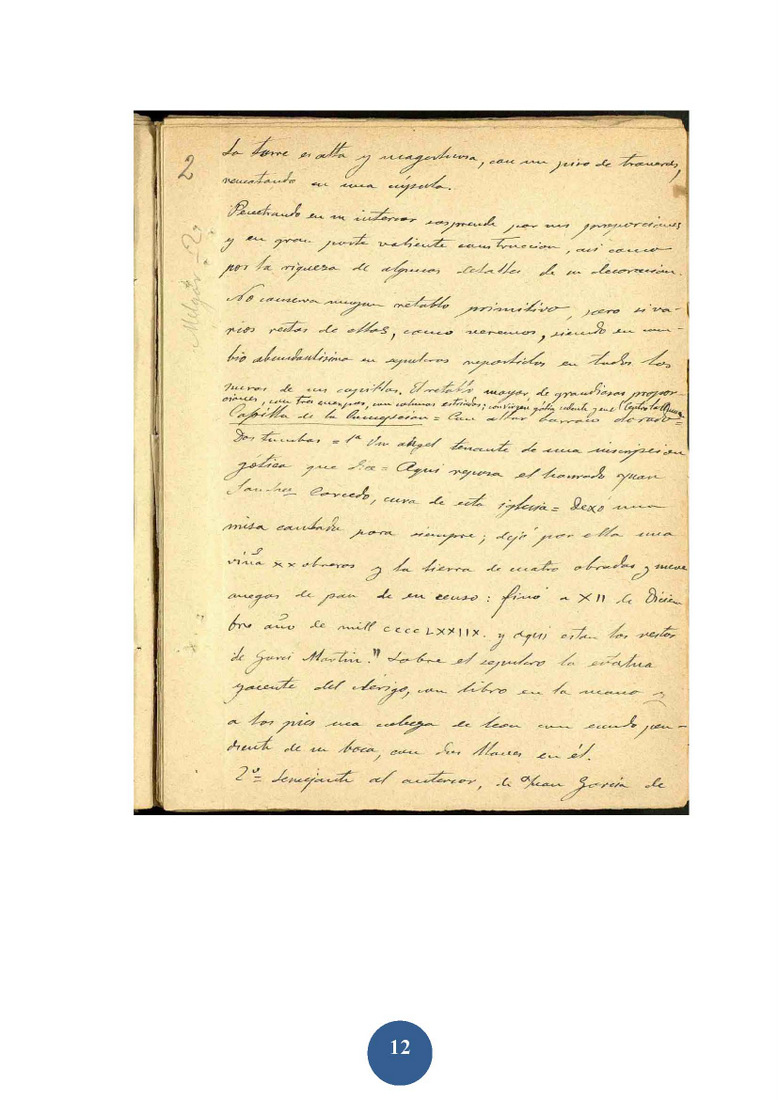 2
La torre es alta y magestuosa, con un piso de troneras,
rematando en una cúpula.
Melgar - 2
Penetrando en su interior sorprende por sus proporciones
y en gran parte valiente construccion, asi como
por la riqueza de algunos detalles de su decoración.
No conserva ningun retablo primitivo, pero si va-
rios restos de ellos, como veremos, siendo en cam-
bio abundantisima en sepulcros repartidos en todos los
muros de sus capillas. El retablo mayor, de grandiosas propor-
ciones, con tres cuerpos, con columnas estriadas; con virgen gótica
Capilla de la Concepcion = Con altar barroco
Dos tumbas = 1ª Un angel tenante de una inscripcion
gótica que dice = Aqui reposa el honrado
Sanchez Carcedo, cura de esta iglesia = dexó una
misa cantada para siempre; dejó por ella una
viña xx obreros y la tierra de cuatro obradas y nueve
anegas de pan de en censo: finó a XII de Diciem
bre año de mill ccccLXXIIX. y aqui estan los restos
de Garci Martin." Sobre el sepulcro la estatua
yacente del clérigo, con libro en la mano y
a los pies una cabeza de leon con escudo pen-
diente de su boca, con dos llaves en él.
2º= Semejante al anterior, de Juan Garcia de
12